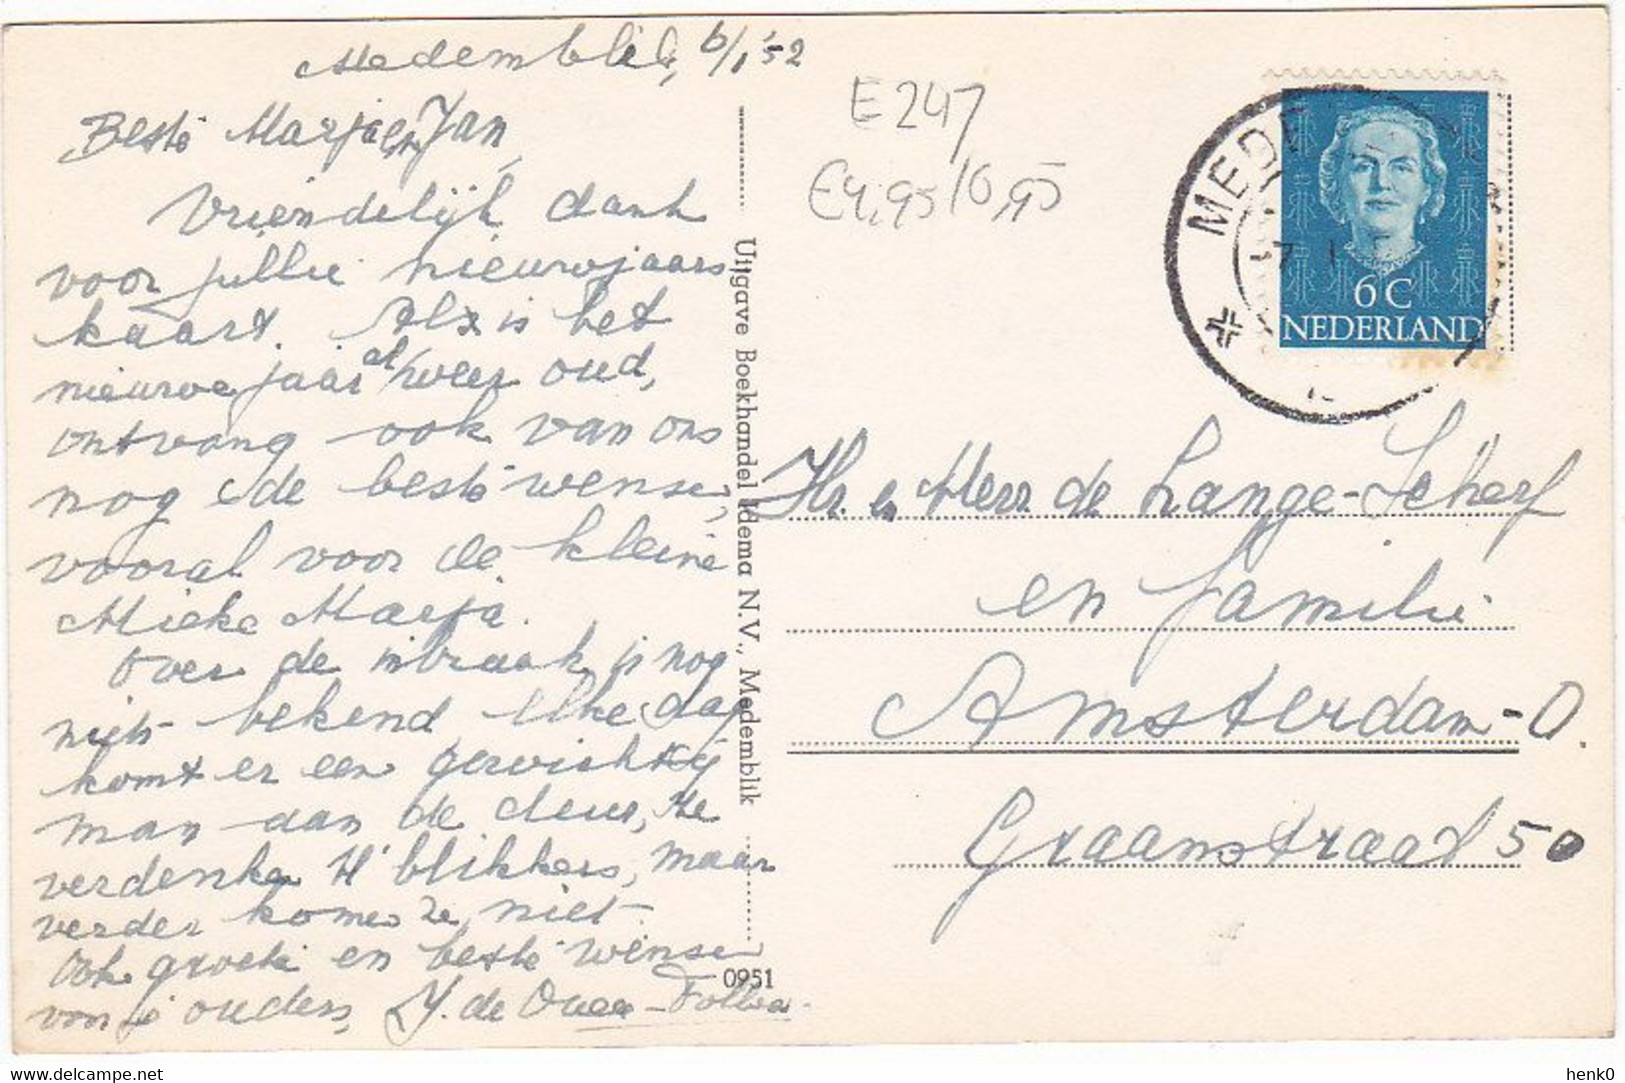 Medemblik, 6/1 '52
Beste Marja en Jan,
Vriendelijk dank
voor jullie nieuwjaars
kaart. Al is het
nieuwe jaar al weer oud,
ontvang ook van ons
nog de beste wensen,
vooral voor de kleine
Mieke Marja.
Over de inbraak is nog
niets bekend, elke dag
komt er een gewichtig
man aan de deur, ze
verdenken blikkers, maar
verder komen ze niet.
Ook groeten en beste wensen
van je ouders, J. de
Uitgave Boekhandel Idema N.V., Medemblik
0951
E247
E4,95/6,95
MEDE
7 1
6 C
NEDERLAND
Hr. en Mevr. de Lange-Scherf
en familie
Amsterdam-O.
Graanstraat 50
henk0